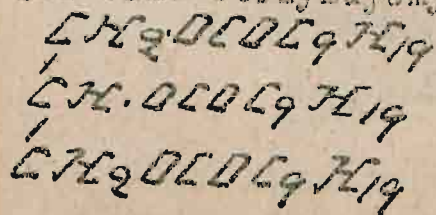 CH2·OCOC9H19
CH·OCOC9H19
CH2OCOC9H19